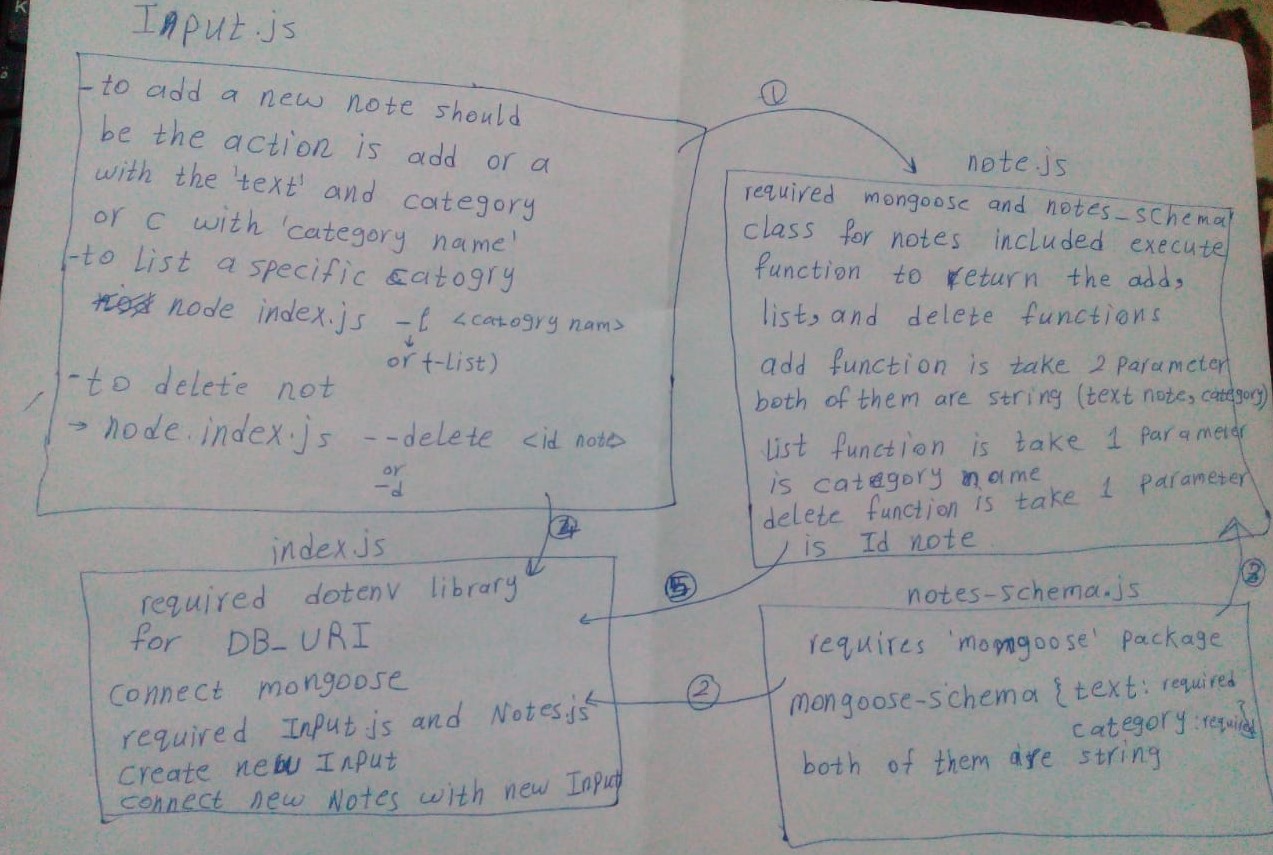 Input.js
-to add a new note should
be the action is add or a
with the 'text' and category
or c with 'category name'
-to list a specific catogry
node index.js -l <catogry nam>
or t-list)
-to delete not
→ node.index.js --delete <id note>
or
-d
①
note.js
required mongoose and notes_schema
class for notes included execute
function to return the add,
list, and delete functions
add function is take 2 parameter
both of them are string (text note, category)
list function is take 1 parameter
is category name
delete function is take 1 parameter
is Id note
index.js
required dotenv library
for DB_URI
connect mongoose
required Input.js and Notes.js
create new Input
connect new Notes with new Input
⑤
②
notes-schema.js
requires 'momgoose' package
mongoose-schema { text: required
category: required }
both of them are string